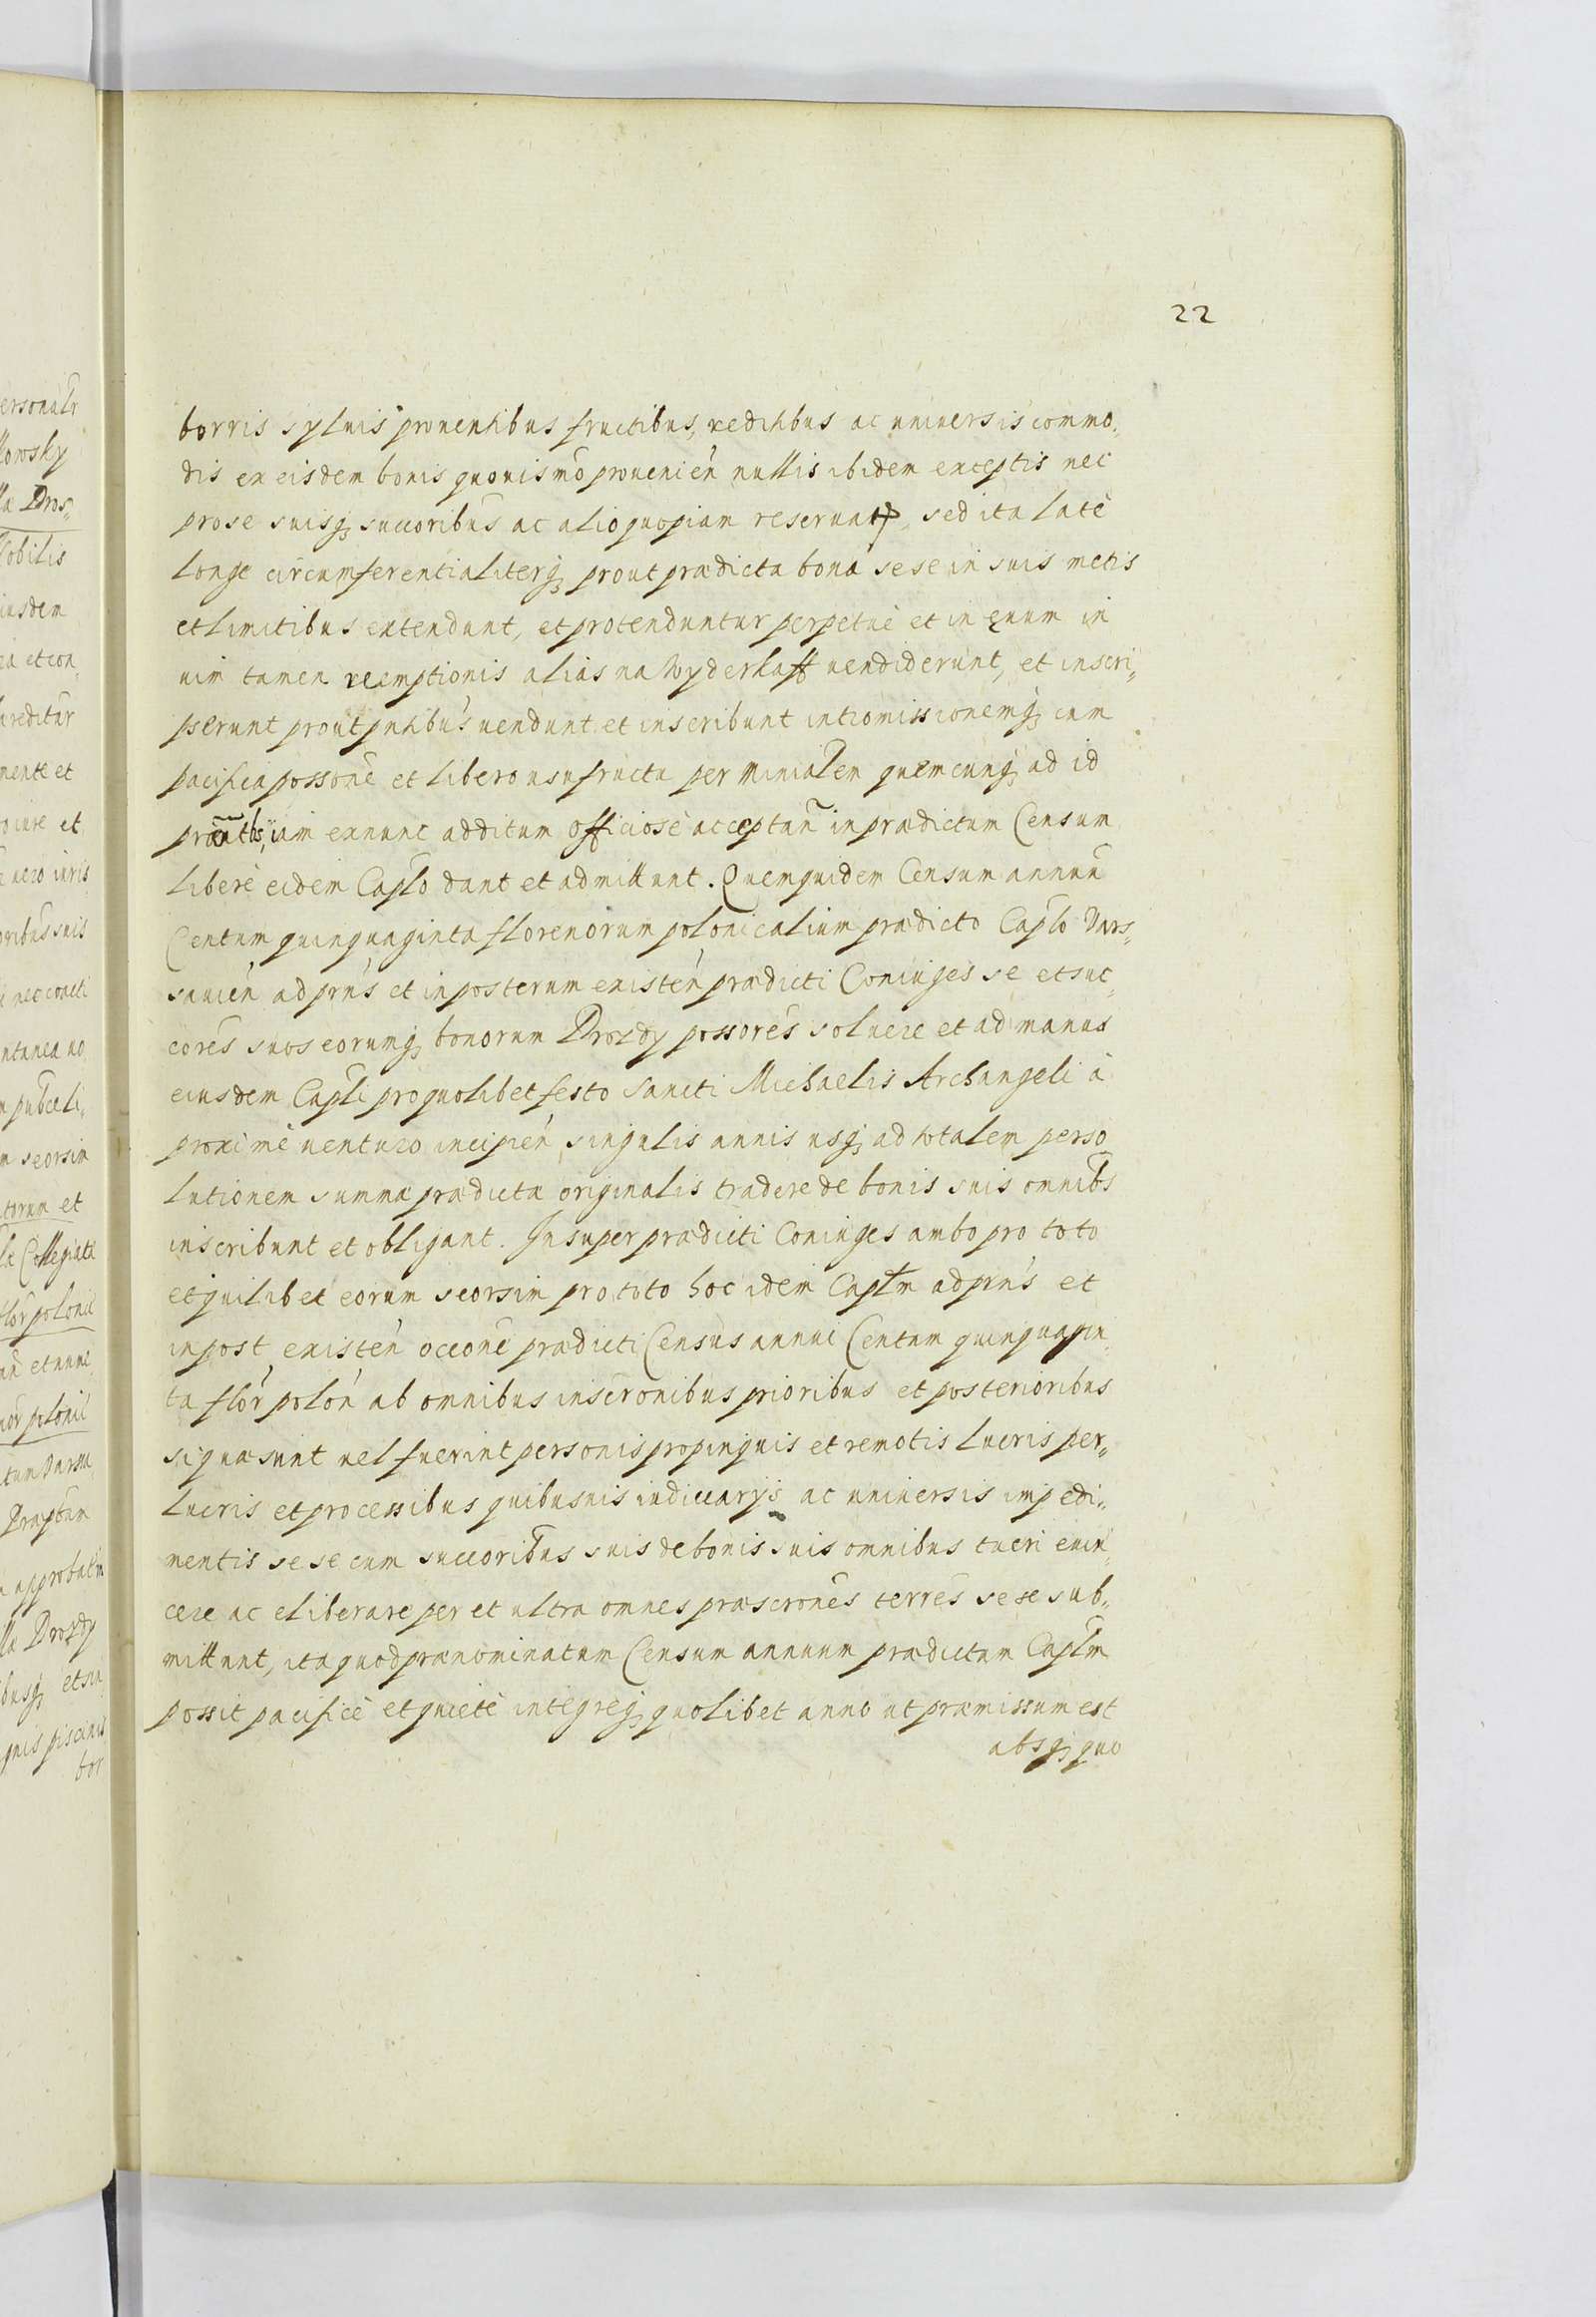 22
borris syluis prouentibus fructibus, reditibus ac uniuersis commo,
dis ex eisdem bonis quouismõ prouenień nullis ibidem exceptis nec
pro se suisq; succoribus ac alio quopiam reseruatis, sed ita latè
longe circumferentialiterq; prout prædicta bona sese in suis metis
et limitibus extendunt, et protenduntur perpetuè et in ęuum in
uim tamen reemptionis alias na Wyderkaff uendiderunt, et inscri„
pserunt prout pntibus uendunt et inscribunt intromissionemq; cum
pacifica possone et libero usufructu per minialem quemcunq; ad id
iam exnunc additum officiosè acceptañ in prædictum Censum
liberè eidem Caplo dant et admittunt. Quemquidem Censum annuũ
Centum quinquaginta florenorum polonicalium prædicto Caplo Vars„
sauień ad prńs et inposterum existeń prædicti Coniuges se et suc„
cores suos eorumq; bonorum Drozdy possores soluere et ad manus
eiusdem Capli pro quolibet festo Sancti Michaelis Archangeli à
proximè uenturo incipień, singulis annis usq; ad totalem perso
lutionem summæ prædictæ originalis tradere de bonis suis omnibs
inscribunt et obligant. Insuper prædicti Coniuges ambo pro toto
et quilibet eorum seorsim pro toto hoc idem Caplm ad prńs et
inpost existeń occone prædicti Census annui Centum quinquagin„
ta flor poloń ab omnibus inscronibus prioribus et posterioribus
si quæ sunt uel fuerint personis propinquis et remotis lucris per„
lucris et processibus quibusuis iudiciarijs ac uniuersis impedi„
mentis sese cum succoribus suis de bonis suis omnibus tueri euin„
cere ac eliberare per et ultra omnes præscrones terres sese sub„
mittunt, ita quod prænominatum Censum annuum prædictum Caplm
possit pacificè et quietè integreq; quolibet anno ut præmissum est
absq; quo